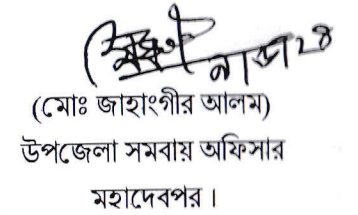 (মোঃ জাহাংগীর আলম)
উপজেলা সমবায় অফিসার
মহাদেবপুর।